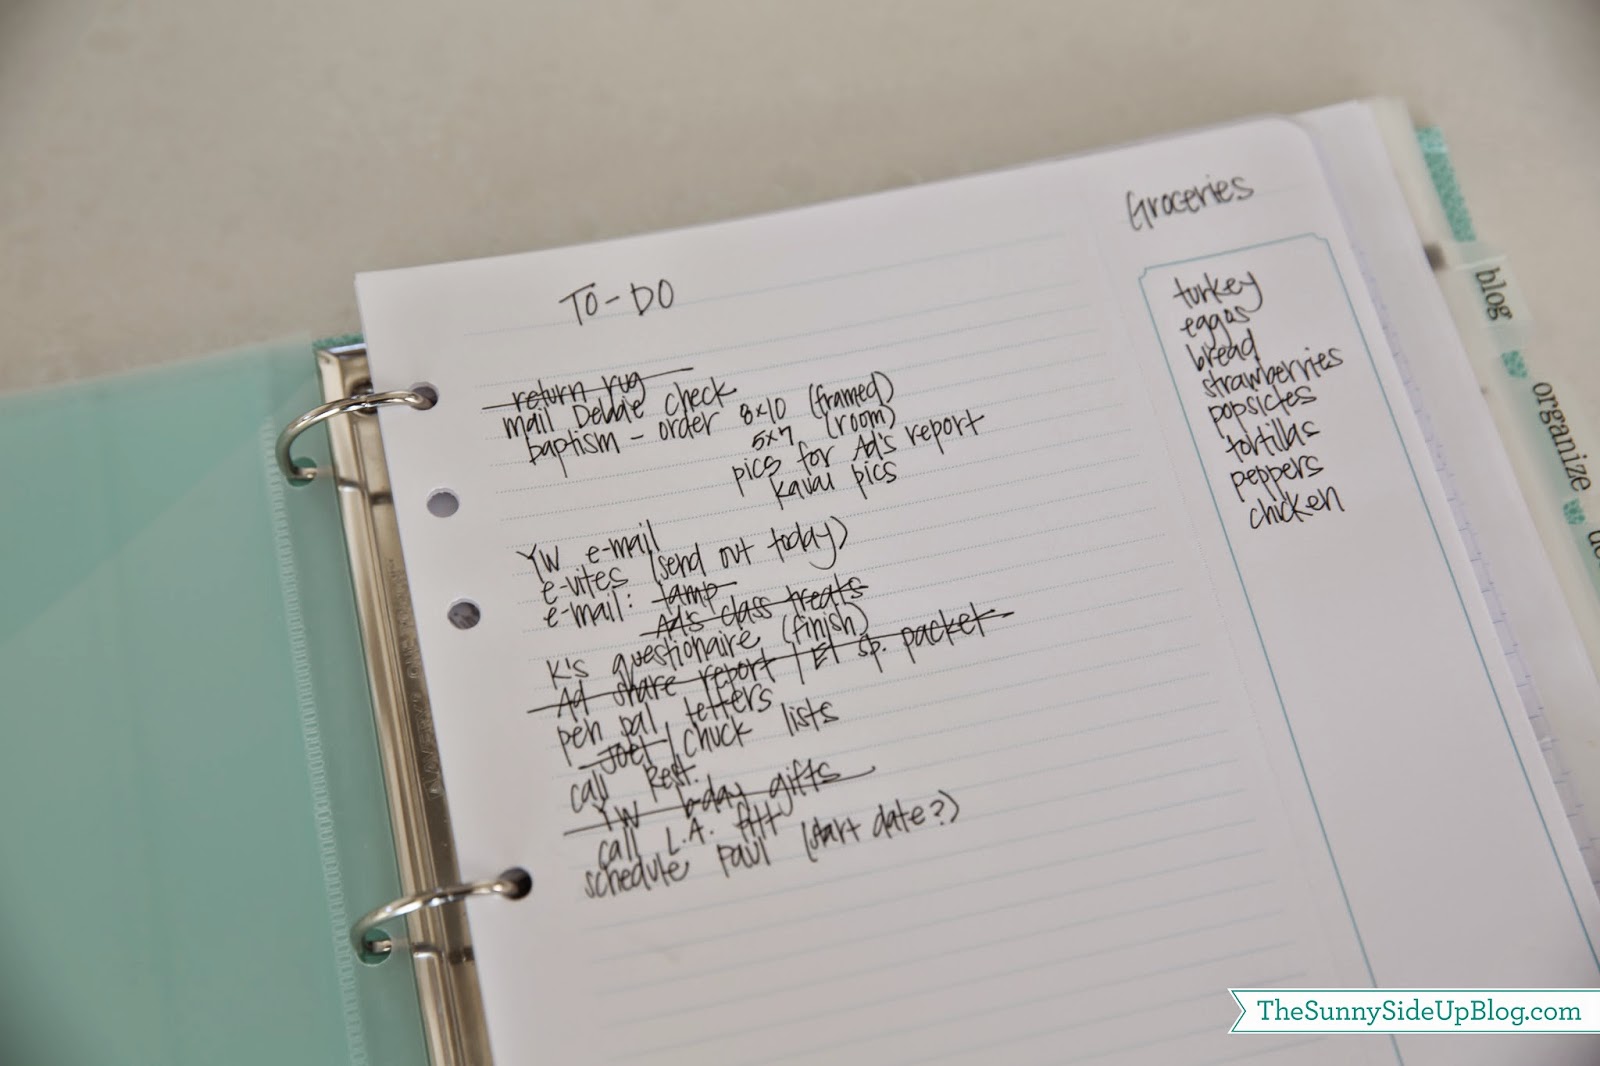 TO-DO
return rug
mail Debbie check
baptism - order 8x10 (framed)
5x7 (room)
pics for Ad's report
Kauai pics
YW e-mail
e-vites (send out today)
e-mail: tamp
Ad's class treats
K's questionaire (finish)
Ad share report / El sp. packet
pen pal letters
Joet / Chuck lists
call Rest.
YW b-day gifts
call L.A. fitt
schedule Paul (start date?)
Groceries
turkey
eggos
bread
strawberries
popsicles
tortillas
peppers
chicken
blog
organize
TheSunnySideUpBlog.com